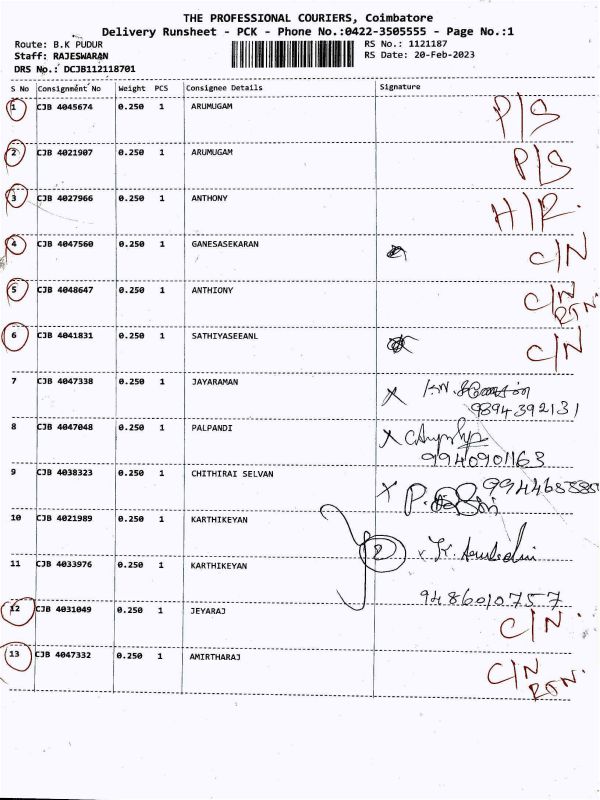 THE PROFESSIONAL COURIERS, Coimbatore
Delivery Runsheet - PCK - Phone No.:0422-3505555 - Page No.:1
Route: B.K PUDUR RS No.: 1121187
Staff: RAJESWARAN RS Date: 20-Feb-2023
DRS No.: DCJB112118701
S No Consignment No Weight PCS Consignee Details Signature
1 CJB 4045674 0.250 1 ARUMUGAM P/S
2 CJB 4021907 0.250 1 ARUMUGAM P/S
3 CJB 4027966 0.250 1 ANTHONY H/R.
4 CJB 4047560 0.250 1 GANESASEKARAN C/N
5 CJB 4048647 0.250 1 ANTHIONY C/N
RTN.
6 CJB 4041831 0.250 1 SATHIYASEEANL C/N
7 CJB 4047338 0.250 1 JAYARAMAN X
9894392131
8 CJB 4047048 0.250 1 PALPANDI X
9940901163
9 CJB 4038323 0.250 1 CHITHIRAI SELVAN X P.
10 CJB 4021989 0.250 1 KARTHIKEYAN
2 x K.
11 CJB 4033976 0.250 1 KARTHIKEYAN
9486010757
12 CJB 4031049 0.250 1 JEYARAJ C/N.
13 CJB 4047332 0.250 1 AMIRTHARAJ C/N
RTN.